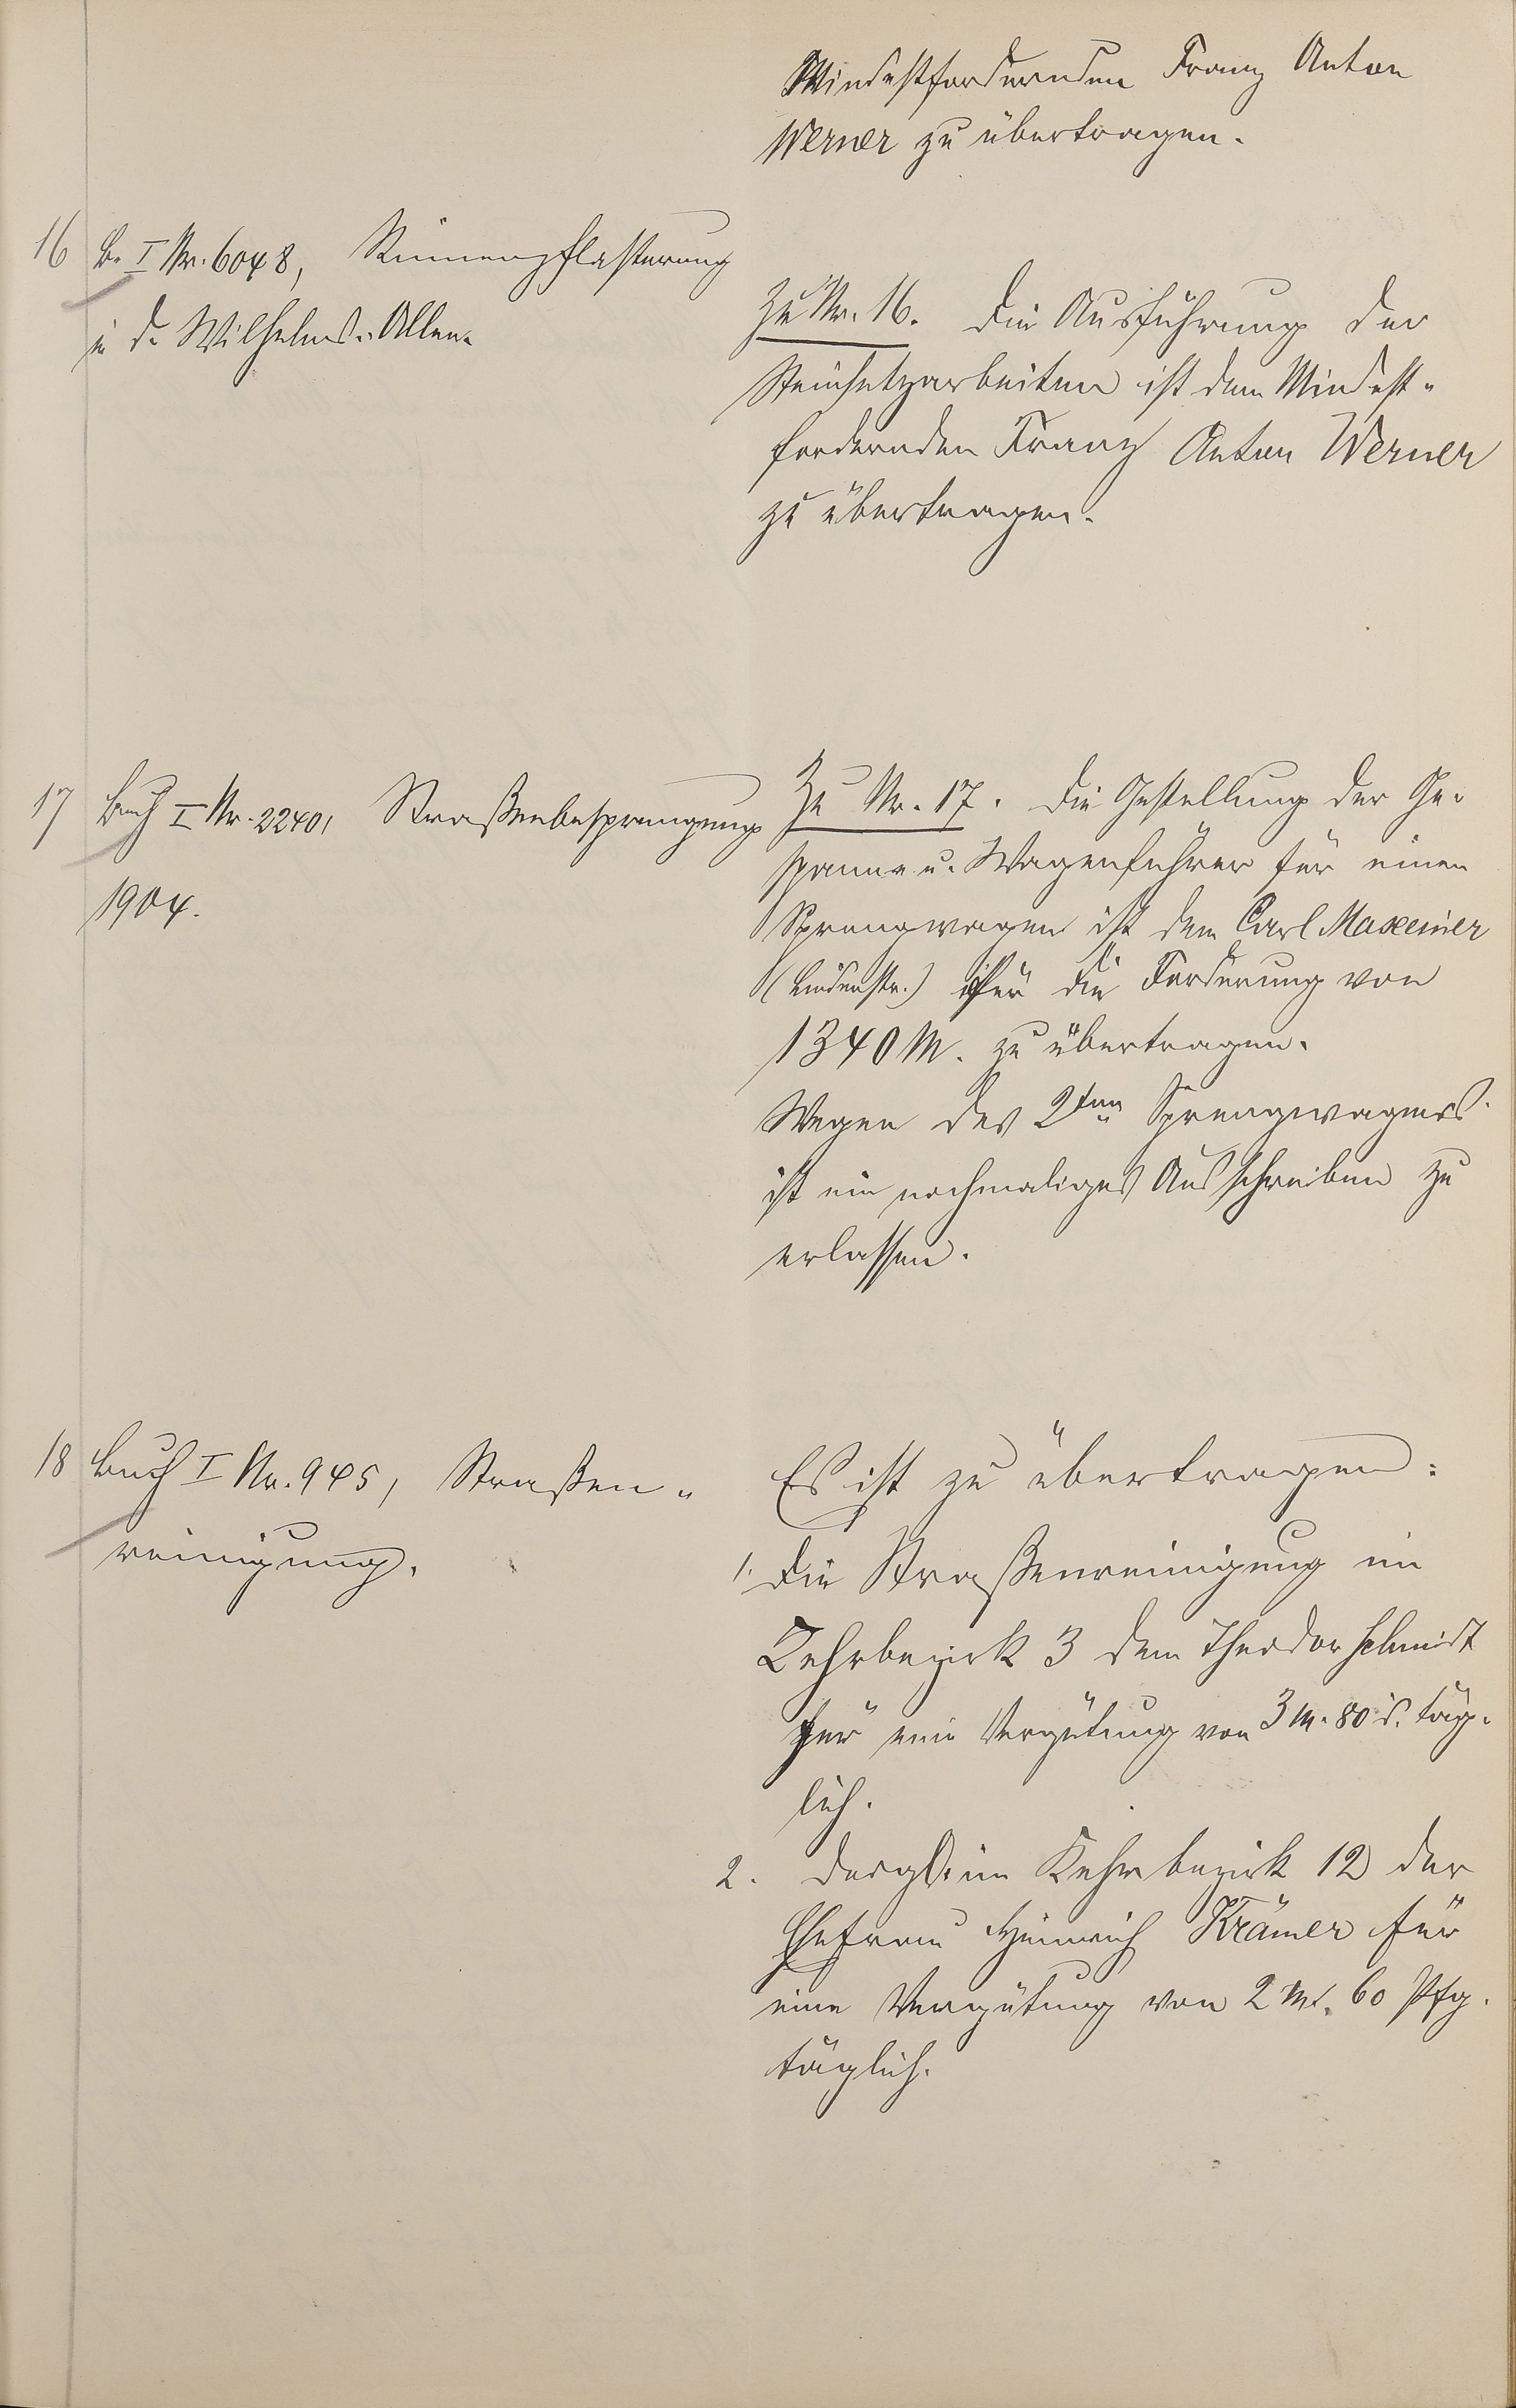 Mindestfordernden Franz Anton
Werner zu übertragen.
16 B. I Nr. 6048, Rinnenpflasterung
i. d. Wilhelms-Allee.
Zu Nr. 16. Die Ausführung der
Steinsetzarbeiten ist dem Mindest-
fordernden Franz Anton Werner
zu übertragen.
17 Buch I Nr. 2240, Straßenbesprengung
1904.
Zu Nr. 17. Die Gestellung der Ge-
spanne u. Wagenführer für einen
Sprengwagen ist dem Carl Maxeiner
(Lindenstr.) für die Forderung von
1340 M. zu übertragen.
Wegen des 2ten Sprengwagens
ist ein nochmaliges Ausschreiben zu
erlassen.
18 Buch I Nr. 945, Straßen-
reinigung.
Es ist zu übertragen:
1. Die Straßenreinigung im
Kehrbezirk 3 dem Theodor Schmidt
für eine Vergütung von 3 M. 80 täg-
lich.
2. desgl. im Kehrbezirk 12 der
Ehefrau Heinrich Krämer für
eine Vergütung von 2 Mk. 60 Pfg.
täglich.